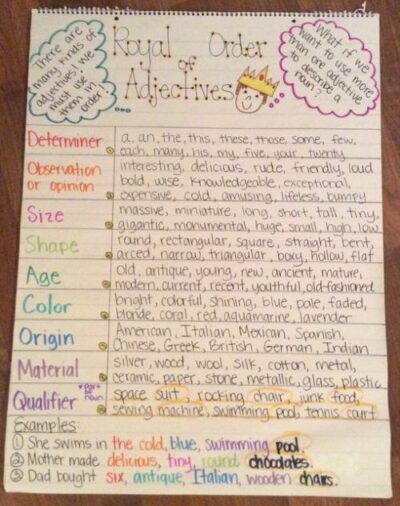 There are
many kinds of
adjectives! We
must use
them in
order!
Royal Order
of
Adjectives
What if we
want to use more
than one adjective
to describe a
noun?
Determiner
a, an, the, this, these, those, some, few,
each, many, his, my, five, your, twenty
Observation
or opinion
interesting, delicious, rude, friendly, loud
bold, wise, knowledgeable, exceptional,
expensive, cold, amusing, lifeless, bumpy
Size
massive, miniature, long, short, tall, tiny,
gigantic, monumental, huge, small, high, low
Shape
round, rectangular, square, straight, bent,
arced, narrow, triangular, boxy, hollow, flat
Age
old, antique, young, new, ancient, mature,
modern, current, recent, youthful, old-fashioned
Color
bright, colorful, shining, blue, pale, faded,
blonde, coral, red, aquamarine, lavender
Origin
American, Italian, Mexican, Spanish,
Chinese, Greek, British, German, Indian
Material
silver, wood, wool, silk, cotton, metal,
ceramic, paper, stone, metallic, glass, plastic
Qualifier
*part of noun
space suit, rocking chair, junk food,
sewing machine, swimming pool, tennis court
Examples:
① She swims in the cold, blue, swimming pool.
② Mother made delicious, tiny, round chocolates.
③ Dad bought six, antique, Italian, wooden chairs.